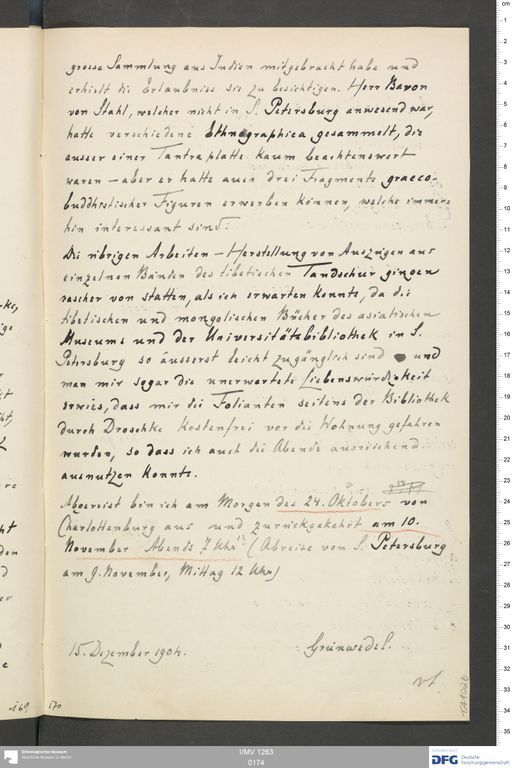 grosse Sammlung aus Indien mitgebracht habe und
erhielt die Erlaubniss sie zu besichtigen. Herr Baron
von Stahl, welcher nicht in S. Petersburg anwesend war,
hatte verschiedene Ethnographica gesammelt, die
ausser einer Tantraplatte kaum beachtenswert
waren – aber er hatte auch drei Fragmente graeco-
buddhistischer Figuren erwerben können, welche immer-
hin interessant sind.
Die übrigen Arbeiten – Herstellung von Auszügen aus
einzelnen Bänden des tibetischen Tandschur gingen
rascher von statten, als ich erwarten konnte, da die
tibetischen und mongolischen Bücher des asiatischen
Museums und der Universitätsbibliothek in S.
Petersburg so äusserst leicht zugänglich sind und
man mir sogar die unerwartete Liebenswürdigkeit
erwies, dass mir die Folianten seitens der Bibliothek
durch Droschke kostenfrei vor die Wohnung gefahren
wurden, so dass ich auch die Abende ausreichend
ausnutzen konnte.
Abgereist bin ich am Morgen des 24. Oktobers von
Charlottenburg aus und zurückgekehrt am 10.
November Abends 7 Uhr (Abreise von S. Petersburg
am 9. November, Mittag 12 Uhr)
15. Dezember 1904. Grünwedel.
169 170
I/MV 1263
0174
Ethnologisches Museum
Staatliche Museen zu Berlin
DFG Deutsche
Forschungsgemeinschaft
cm